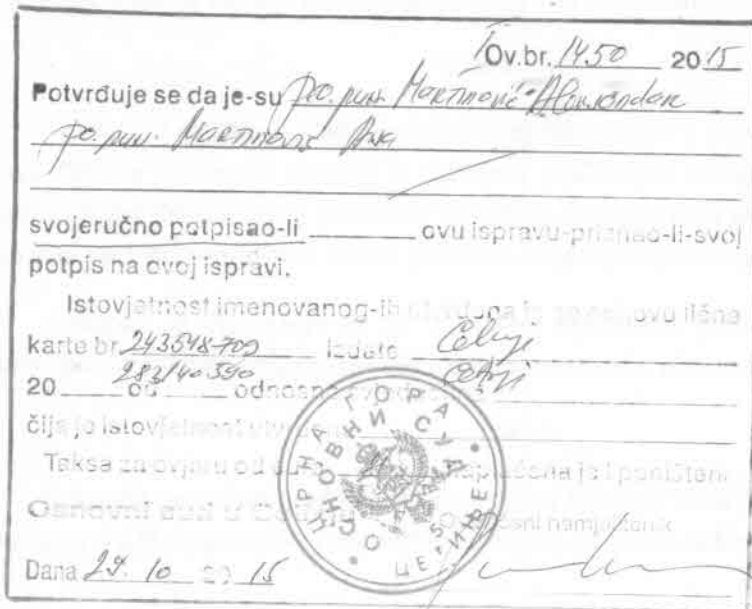 Ov.br. 1450 2015
Potvrđuje se da je-su po. pun. Martinović Alexandar
po. pun. Martinović Ana
svojeručno potpisao-li ovu ispravu-priznao-li-svoj
potpis na ovoj ispravi.
Istovjetnost imenovanog-ih utvrđena je na osnovu lične
karte br. 243548709 izdate Cetinje
283140590 Cetinje
20 od odnosno
čija je istovjetnost
Taksa za ovjeru od naplaćena je i poništena
Osnovni sud u Cetinju Ovlašćeni namještenik
Dana 29. 10 2015
ЦРНА ГОРА
ОСНОВНИ СУД
ЦЕТИЊЕ
5